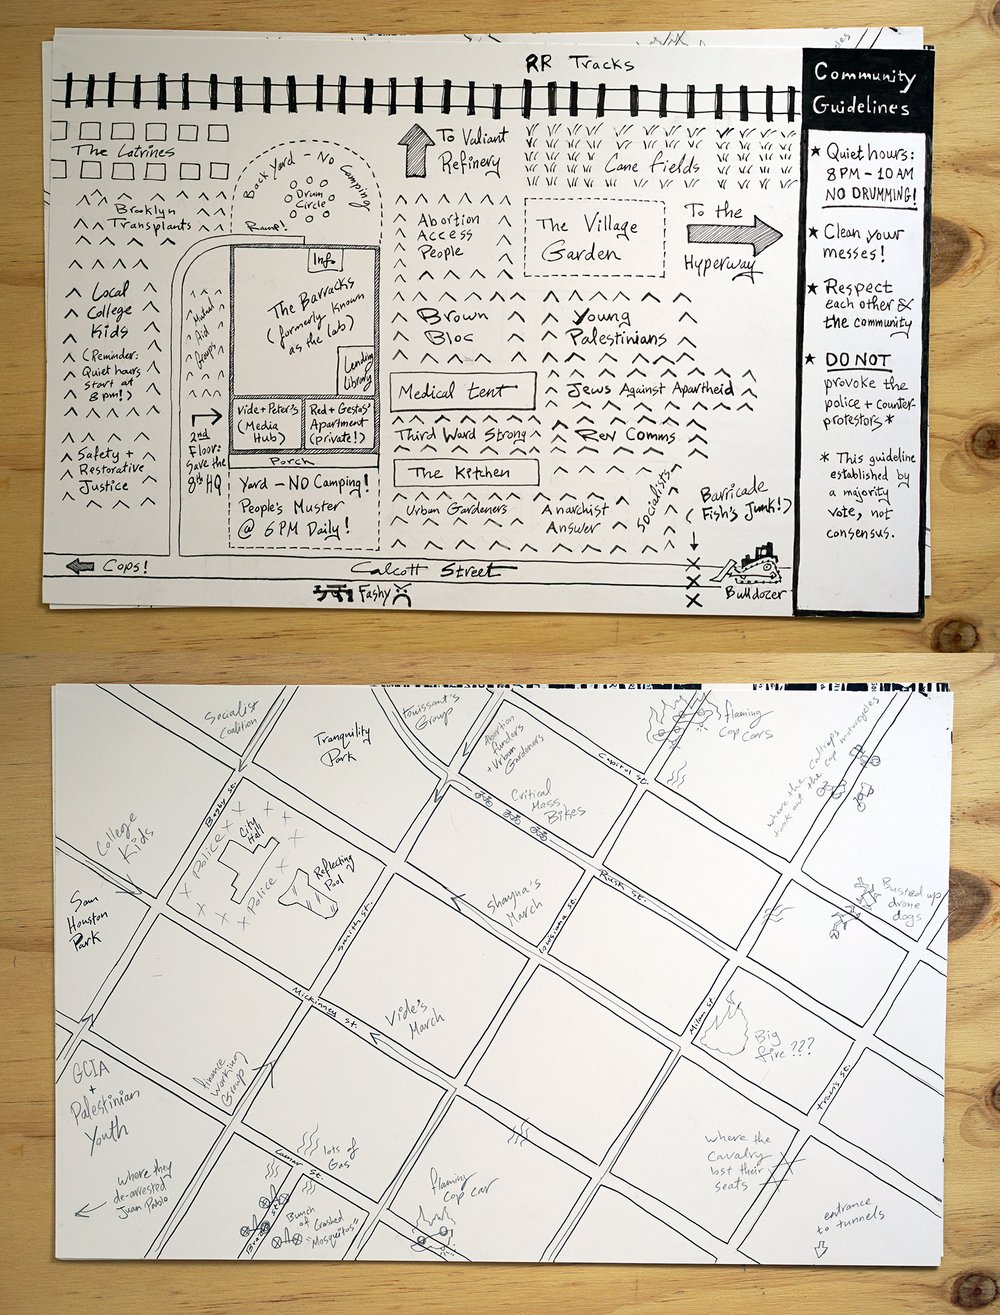 RR Tracks
Community
Guidelines
★ Quiet hours:
8 PM – 10 AM
NO DRUMMING!
★ Clean your
messes!
★ Respect
each other &
the community
★ DO NOT
provoke the
police + counter-
protestors*
* This guideline
established by
a majority
vote, not
consensus.
The Latrines
Back Yard – No Camping
Drum
Circle
To Valiant
Refinery
Cane Fields
Brooklyn
Transplants
Ramp!
Abortion
Access
People
The Village
Garden
To the
Hyperway
Info
The Barracks
(formerly known
as the lab)
Local
College
Kids
(Reminder:
Quiet hours
start at
8pm!)
Mutual
Aid
Groups
Brown
Bloc
Young
Palestinians
Lending
Library
Medical tent
Jews Against Apartheid
Vide + Peter's
(Media
Hub)
Red + Gestas'
Apartment
(private!)
2nd
Floor:
Save the
8th HQ
Third Ward Strong
Rev Comms
Safety +
Restorative
Justice
Porch
The Kitchen
Yard – NO Camping!
People's Muster
@ 6 PM Daily!
Urban Gardeners
Anarchist
Answer
Socialists
Barricade
(Fish's Junk!)
Cops!
Calcott Street
Fashy
Bulldozer
Socialist
Coalition
Tranquility
Park
Toussaint's
Group
Abortion
Funders
+ Urban
Gardeners
flaming
Cop cars
Capitol st.
where the calliops
took out the cop motorcycles
Bagby st.
College
Kids
Police
City
Hall
Police
Reflecting
Pool
Critical
Mass
Bikes
Rusk st.
Sam
Houston
Park
Smith st.
Shayna's
March
Louisiana st.
Busted up
drone
dogs
Mckinney st.
Vide's
March
Milam st.
Big
fire???
Travis st.
GCIA
+
Palestinian
Youth
finance
Working
Group
Lamar st.
lots of
Gas
where they
de-arrested
Juan Pablo
Brazos st.
Bunch
of Crashed
"Mosquitos"
flaming
Cop car
where the
Cavalry
lost their
seats
entrance
to tunnels